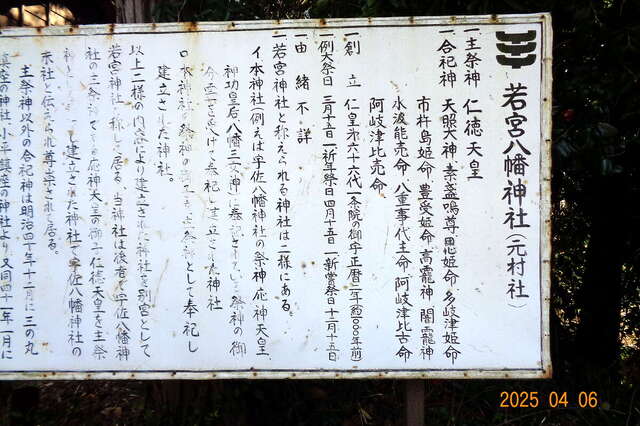 若宮八幡神社(元村社)
一主祭神 仁徳天皇
一合祀神 天照大神・素盞嗚尊・思姫命・多岐津姫命
市杵島姫命・豊受姫命・高靇神・闇靇神
水波能売命・八重事代主命・阿岐津比古命
阿岐津比売命
一創立 仁皇第六十六代一条院の御宇正暦二年(約一〇〇〇年前)
一例大祭日 三月十五日 一祈年祭日四月十五日 一新嘗祭日十一月十五日
一由緒不詳
一若宮神社と称えられる神社は二様にある。
イ本神社(例えば宇佐八幡神社の祭神応神天皇、
神功皇后八幡三女神に奉祀されている祭神の御
分霊を受けて奉祀し建立された神社
ロ本神社の祭神の御子を主祭神として奉祀し
建立された神社。
以上二様の内容により建立された神社を別宮として
若宮神社と称して居る。当神社は後者で宇佐八幡神
社の主祭神である応神天皇の御子仁徳天皇を主祭
神として建立された神社で宇佐八幡神社の
末社と伝えられ尊崇されて居る。
主祭神以外の合祀神は明治四十年十一月に三の丸
鎮座の神社、小平鎮座の神社より、又同四十一年一月に
2025 04 06